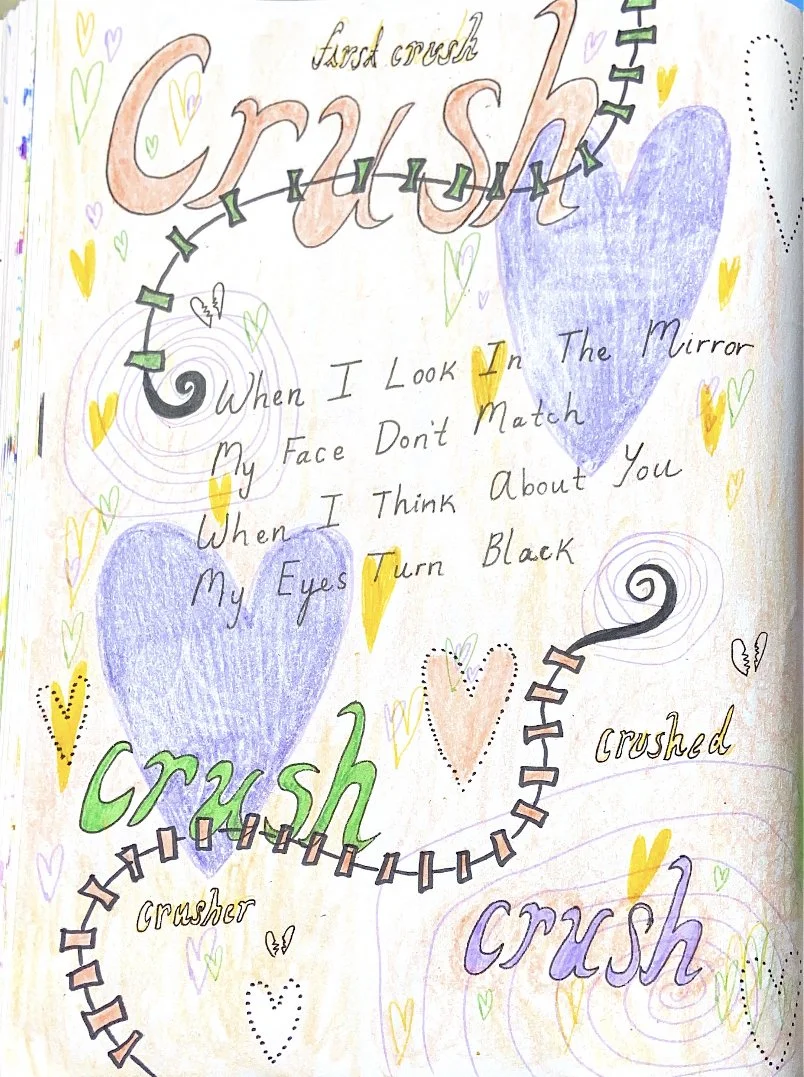 first crush
Crush
When I Look In The Mirror
My Face Don't Match
When I Think About You
My Eyes Turn Black
crush
crushed
crusher
crush